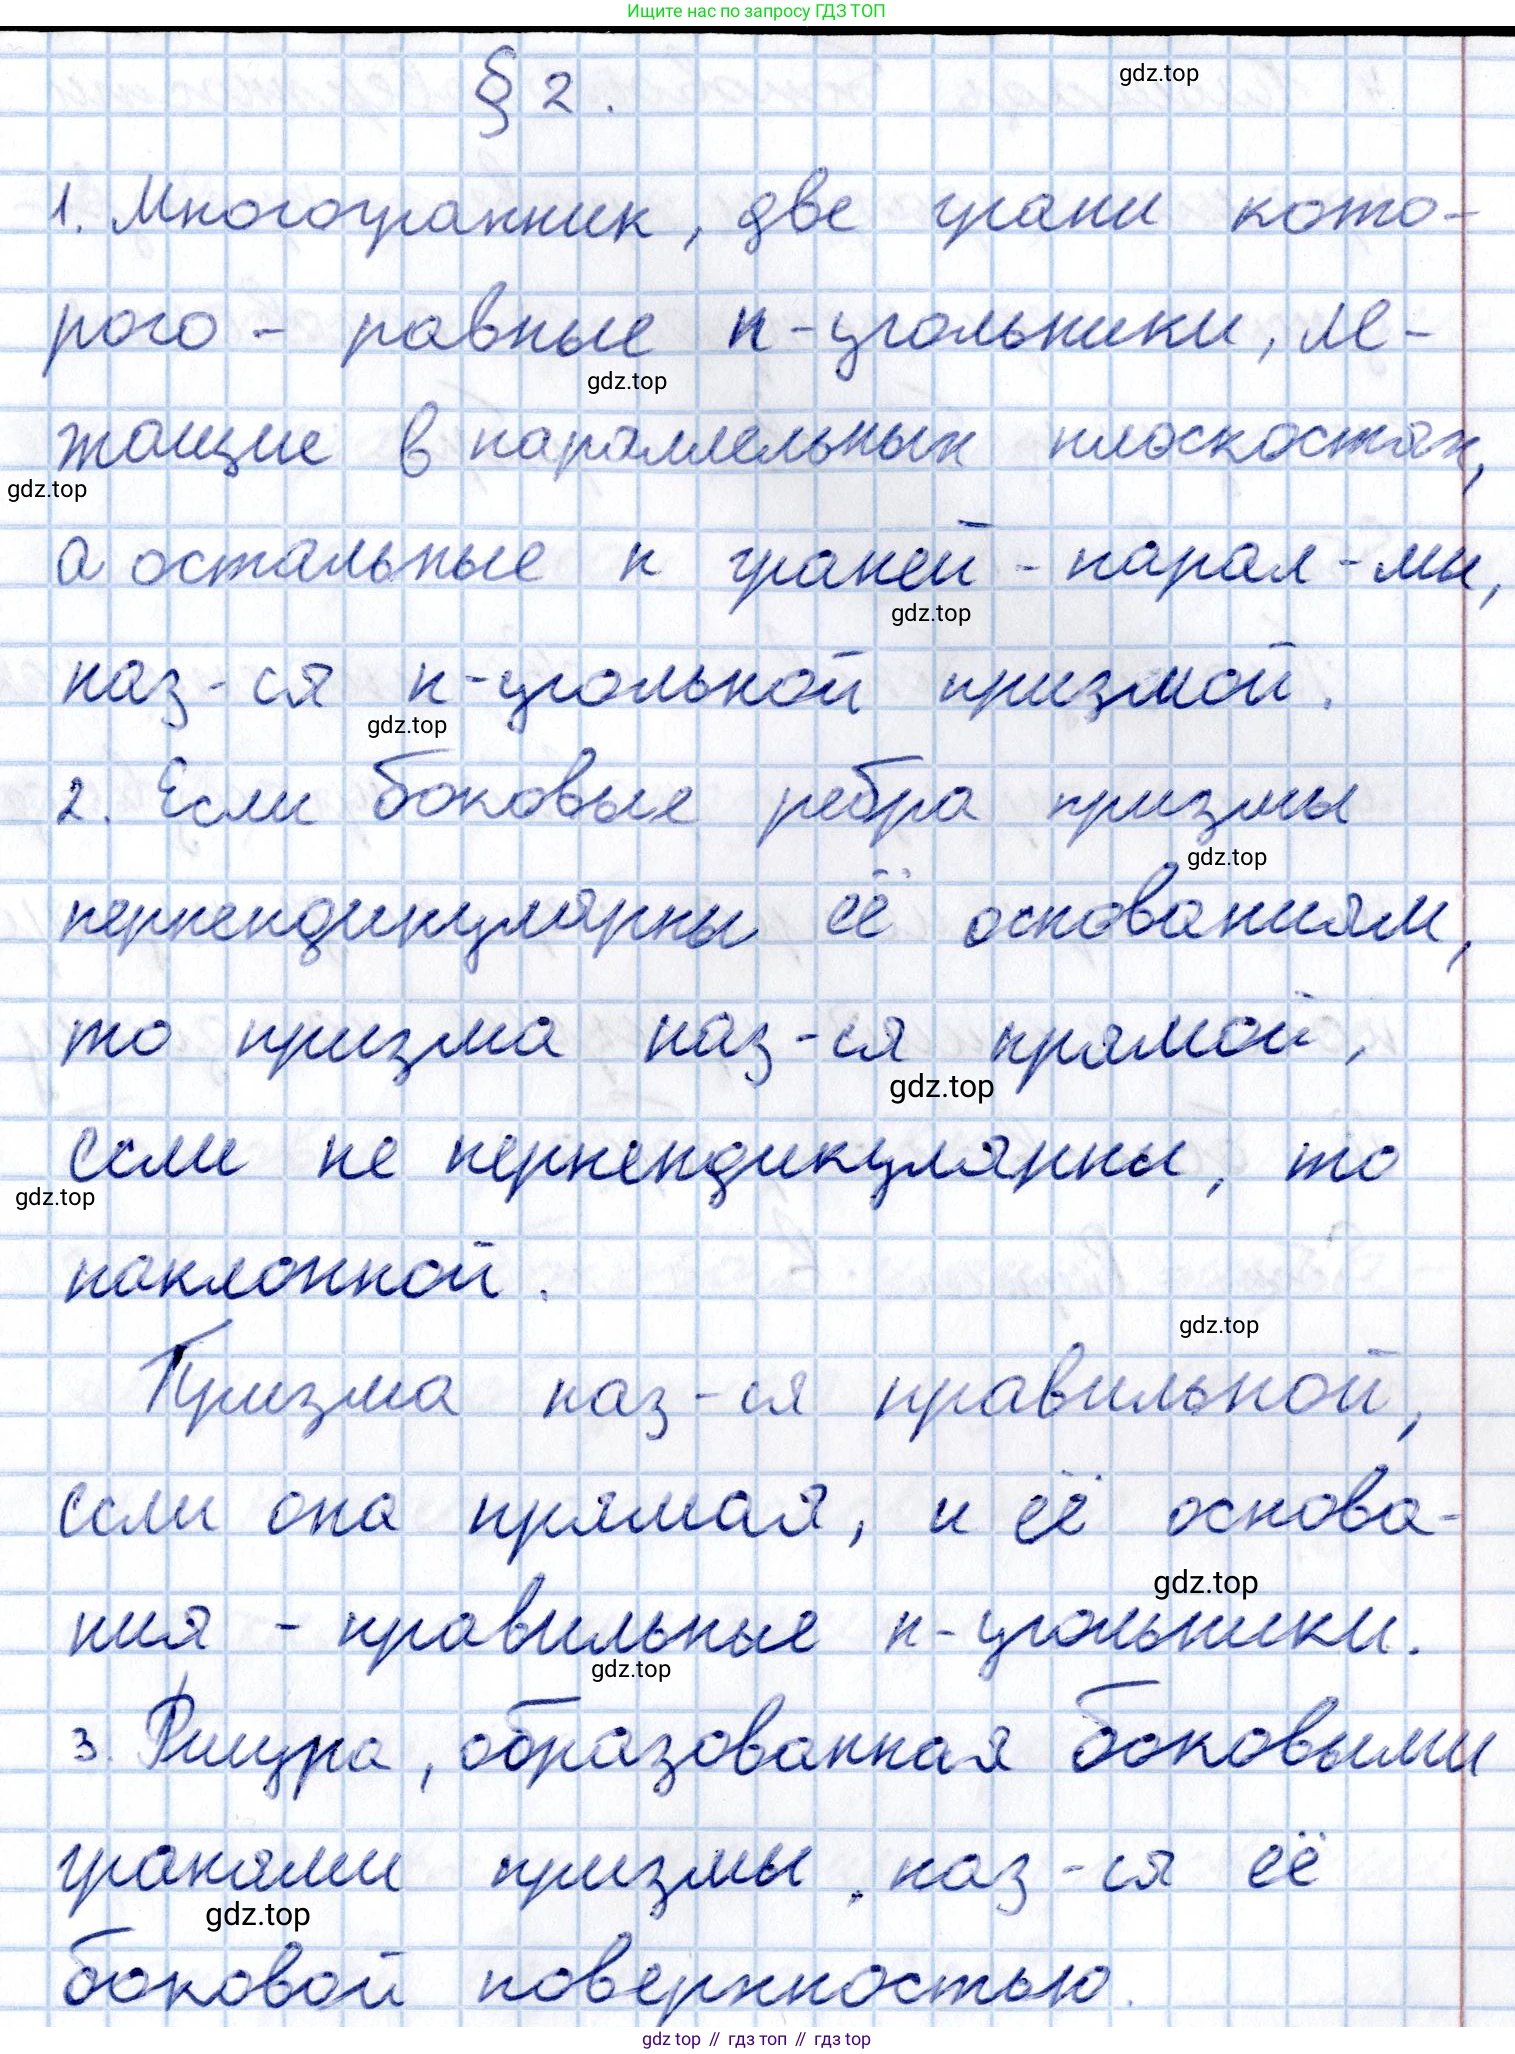 Ищите нас по запросу ГДЗ ТОП
§ 2.
gdz.top
1. Многогранник, две грани кото-
рого - равные n-угольники, ле-
gdz.top
жащие в параллельных плоскостях,
gdz.top
а остальные n граней - парал-мы,
gdz.top
наз-ся n-угольной призмой.
gdz.top
2. Если боковые ребра призмы
gdz.top
перпендикулярны её основаниям,
то призма наз-ся прямой,
gdz.top
если не перпендикулярны, то
gdz.top
наклонной.
gdz.top
Призма наз-ся правильной,
если она прямая, и её основа-
gdz.top
ния - правильные n-угольники.
gdz.top
3. Фигура, образованная боковыми
гранями призмы, наз-ся её
gdz.top
боковой поверхностью.
gdz top // гдз топ // gdz top